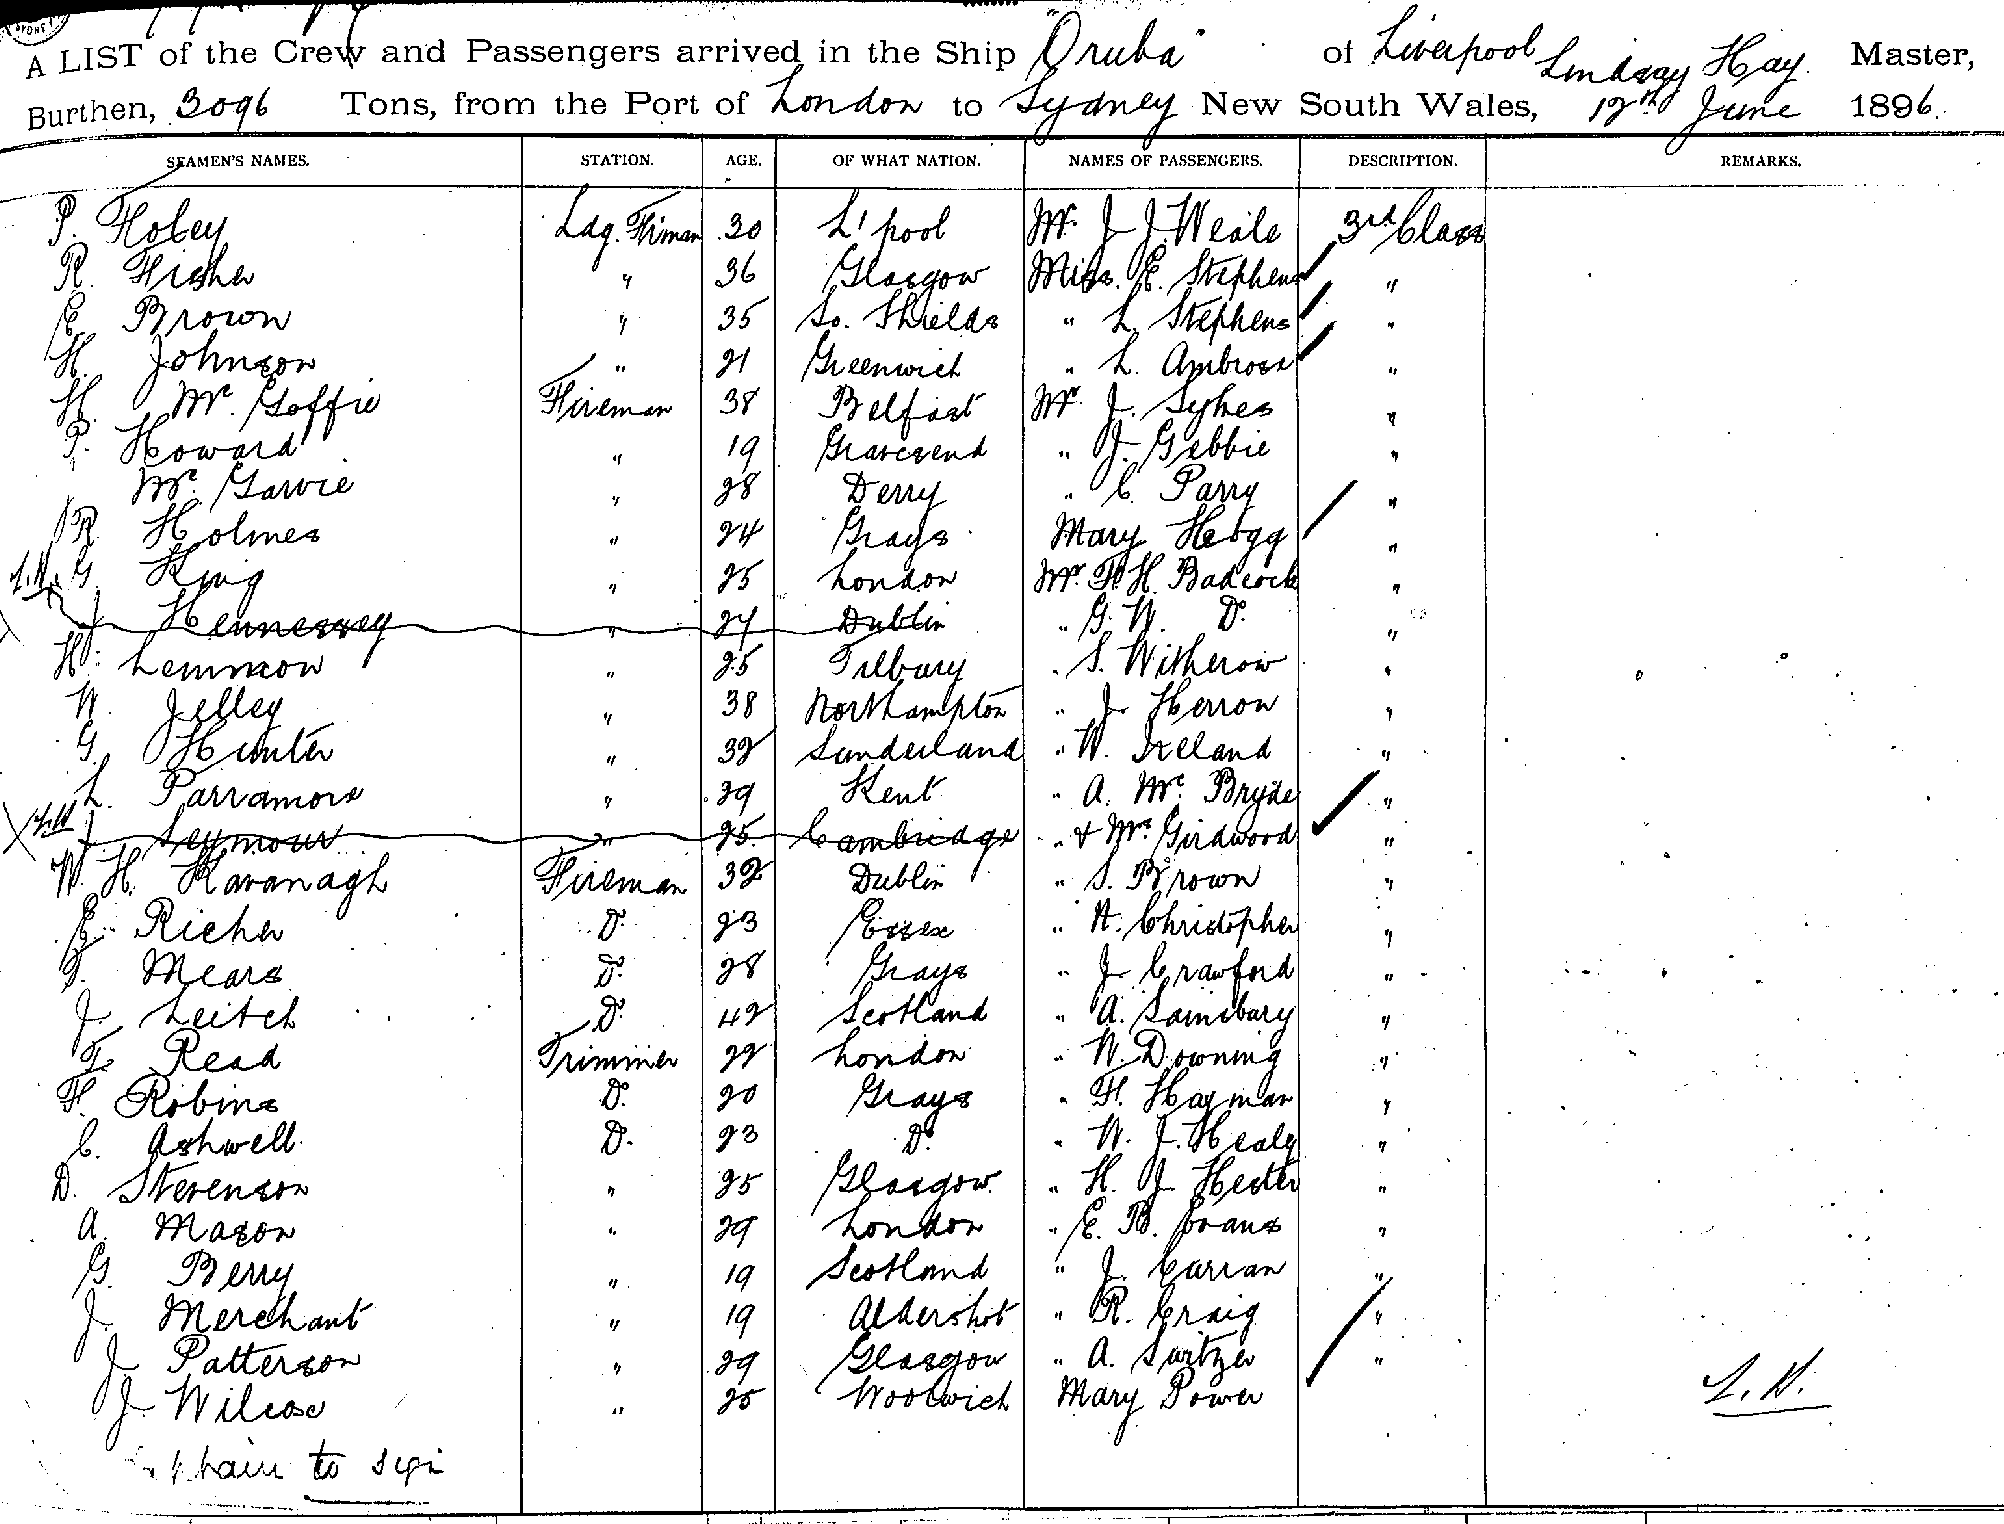 A LIST of the Crew and Passengers arrived in the Ship "Oruba" of Liverpool Lindsay Hay. Master,
Burthen, 3096 Tons, from the Port of London to Sydney New South Wales, 12th June 1896.
SEAMEN'S NAMES. STATION. AGE. OF WHAT NATION. NAMES OF PASSENGERS. DESCRIPTION. REMARKS.
P. Foley Ldg. Firman 30 L'pool Mr. J. J. Weale 3rd Class
R. Fisher " 36 Glasgow Miss. E. Stephens "
E. Brown " 35 So. Shields " L. Stephens "
H. Johnson " 21 Greenwich " L. Ambrose "
H. Mc. Goffie Fireman 38 Belfast Mr. J. Sykes "
P. Howard " 19 Gravesend " J. Gebbie "
Mc. Garvie " 28 Derry " C. Parry "
R. Holmes " 24 Grays Mary Hogg "
G. King " 25 London Mr. F. H. Badcock "
J. Hennessey " 24 Dublin " G. W. Do. "
H. Lemmon " 25 Tilbury " S. Witherow "
W. Jelley " 38 Northampton " J. Herron "
G. Hunter " 32 Sunderland " W. Ireland "
L. Parramore " 29 Kent " A. Mc. Bryde "
J. Seymour " 25 Cambridge " & Mrs Girdwood "
W. H. Kavanagh Fireman 32 Dublin " S. Brown "
E. Richer Do. 23 Essex " A. Christopher "
T. Mears Do. 28 Grays " J. Crawford "
J. Leitch Do. 42 Scotland " A. Sainsbury "
F. Read Trimmer 22 London " W. Downing "
F. Robins Do. 20 Grays " F. Hayman "
C. Ashwell Do. 23 Do. " W. J. Healy "
D. Stevenson " 25 Glasgow " H. J. Hester "
A. Mason " 29 London " E. B. Evans "
G. Berry " 19 Scotland " J. Curran "
J. Merchant " 19 Aldershot " R. Craig "
J. Patterson " 29 Glasgow " A. Switzer "
J. Wilcox " 25 Woolwich Mary Power
L.H.
to sign